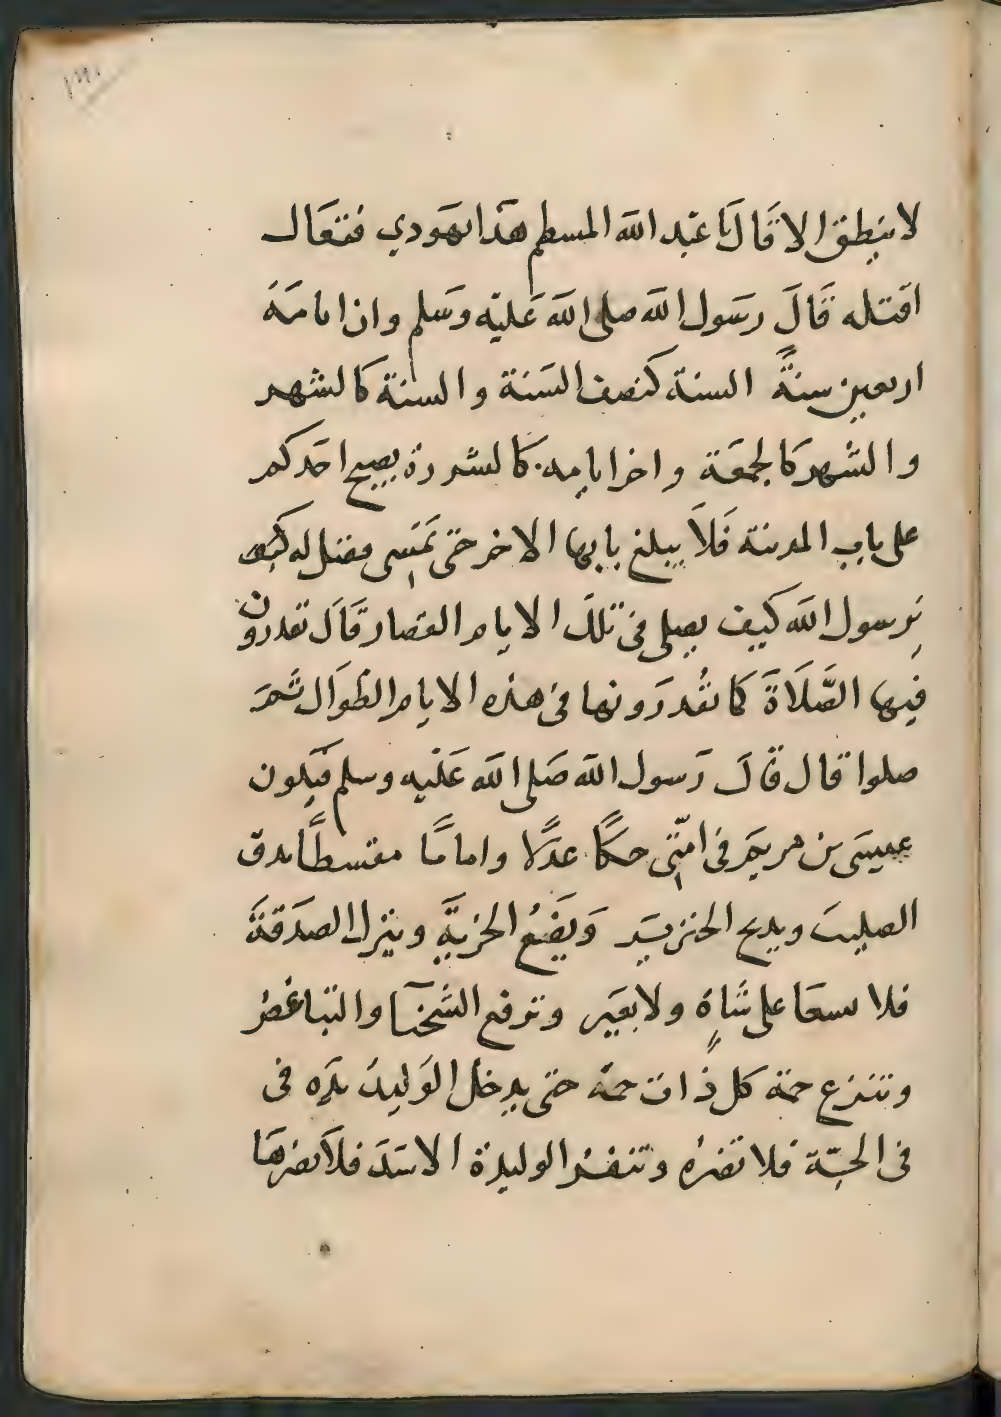 لا ينطق الا قال يا عبد الله المسلم هذا يهودي فتعال
اقتله قال رسول الله صلى الله عليه وسلم وان ايامه
اربعين سنةً السنة كنصف السنة والسنة كالشهر
والشهر كالجمعة واخر ايامه كالشررة يصبح احدكم
على باب المدينة فلا يبلغ بابها الاخر حتى يمسى فقيل له كيف
يرسول الله كيف يصلى فى تلك الايام القصار قال تقدرون
فيها الصَّلَاةَ كما تقدرونها فى هذه الايام الطوال ثم
صلوا قال قال رسول الله صلى الله عليه وسلم فيكون
عيسى بن مريم فى امّتى حكمًا عدلًا واماما مقسطًا يدق
الصليب ويذبح الخنزير وَيَضَعُ الجزية ويترك الصدقة
فلا يسعا على شاةٍ ولا بعير وترفع الشحنآ والتباغض
وتنزع حمة كل ذات حمة حتى يدخل الوليد يده فى
فى الحيّة فلا تضره وتنفر الوليدة الاسد فلا يضرها